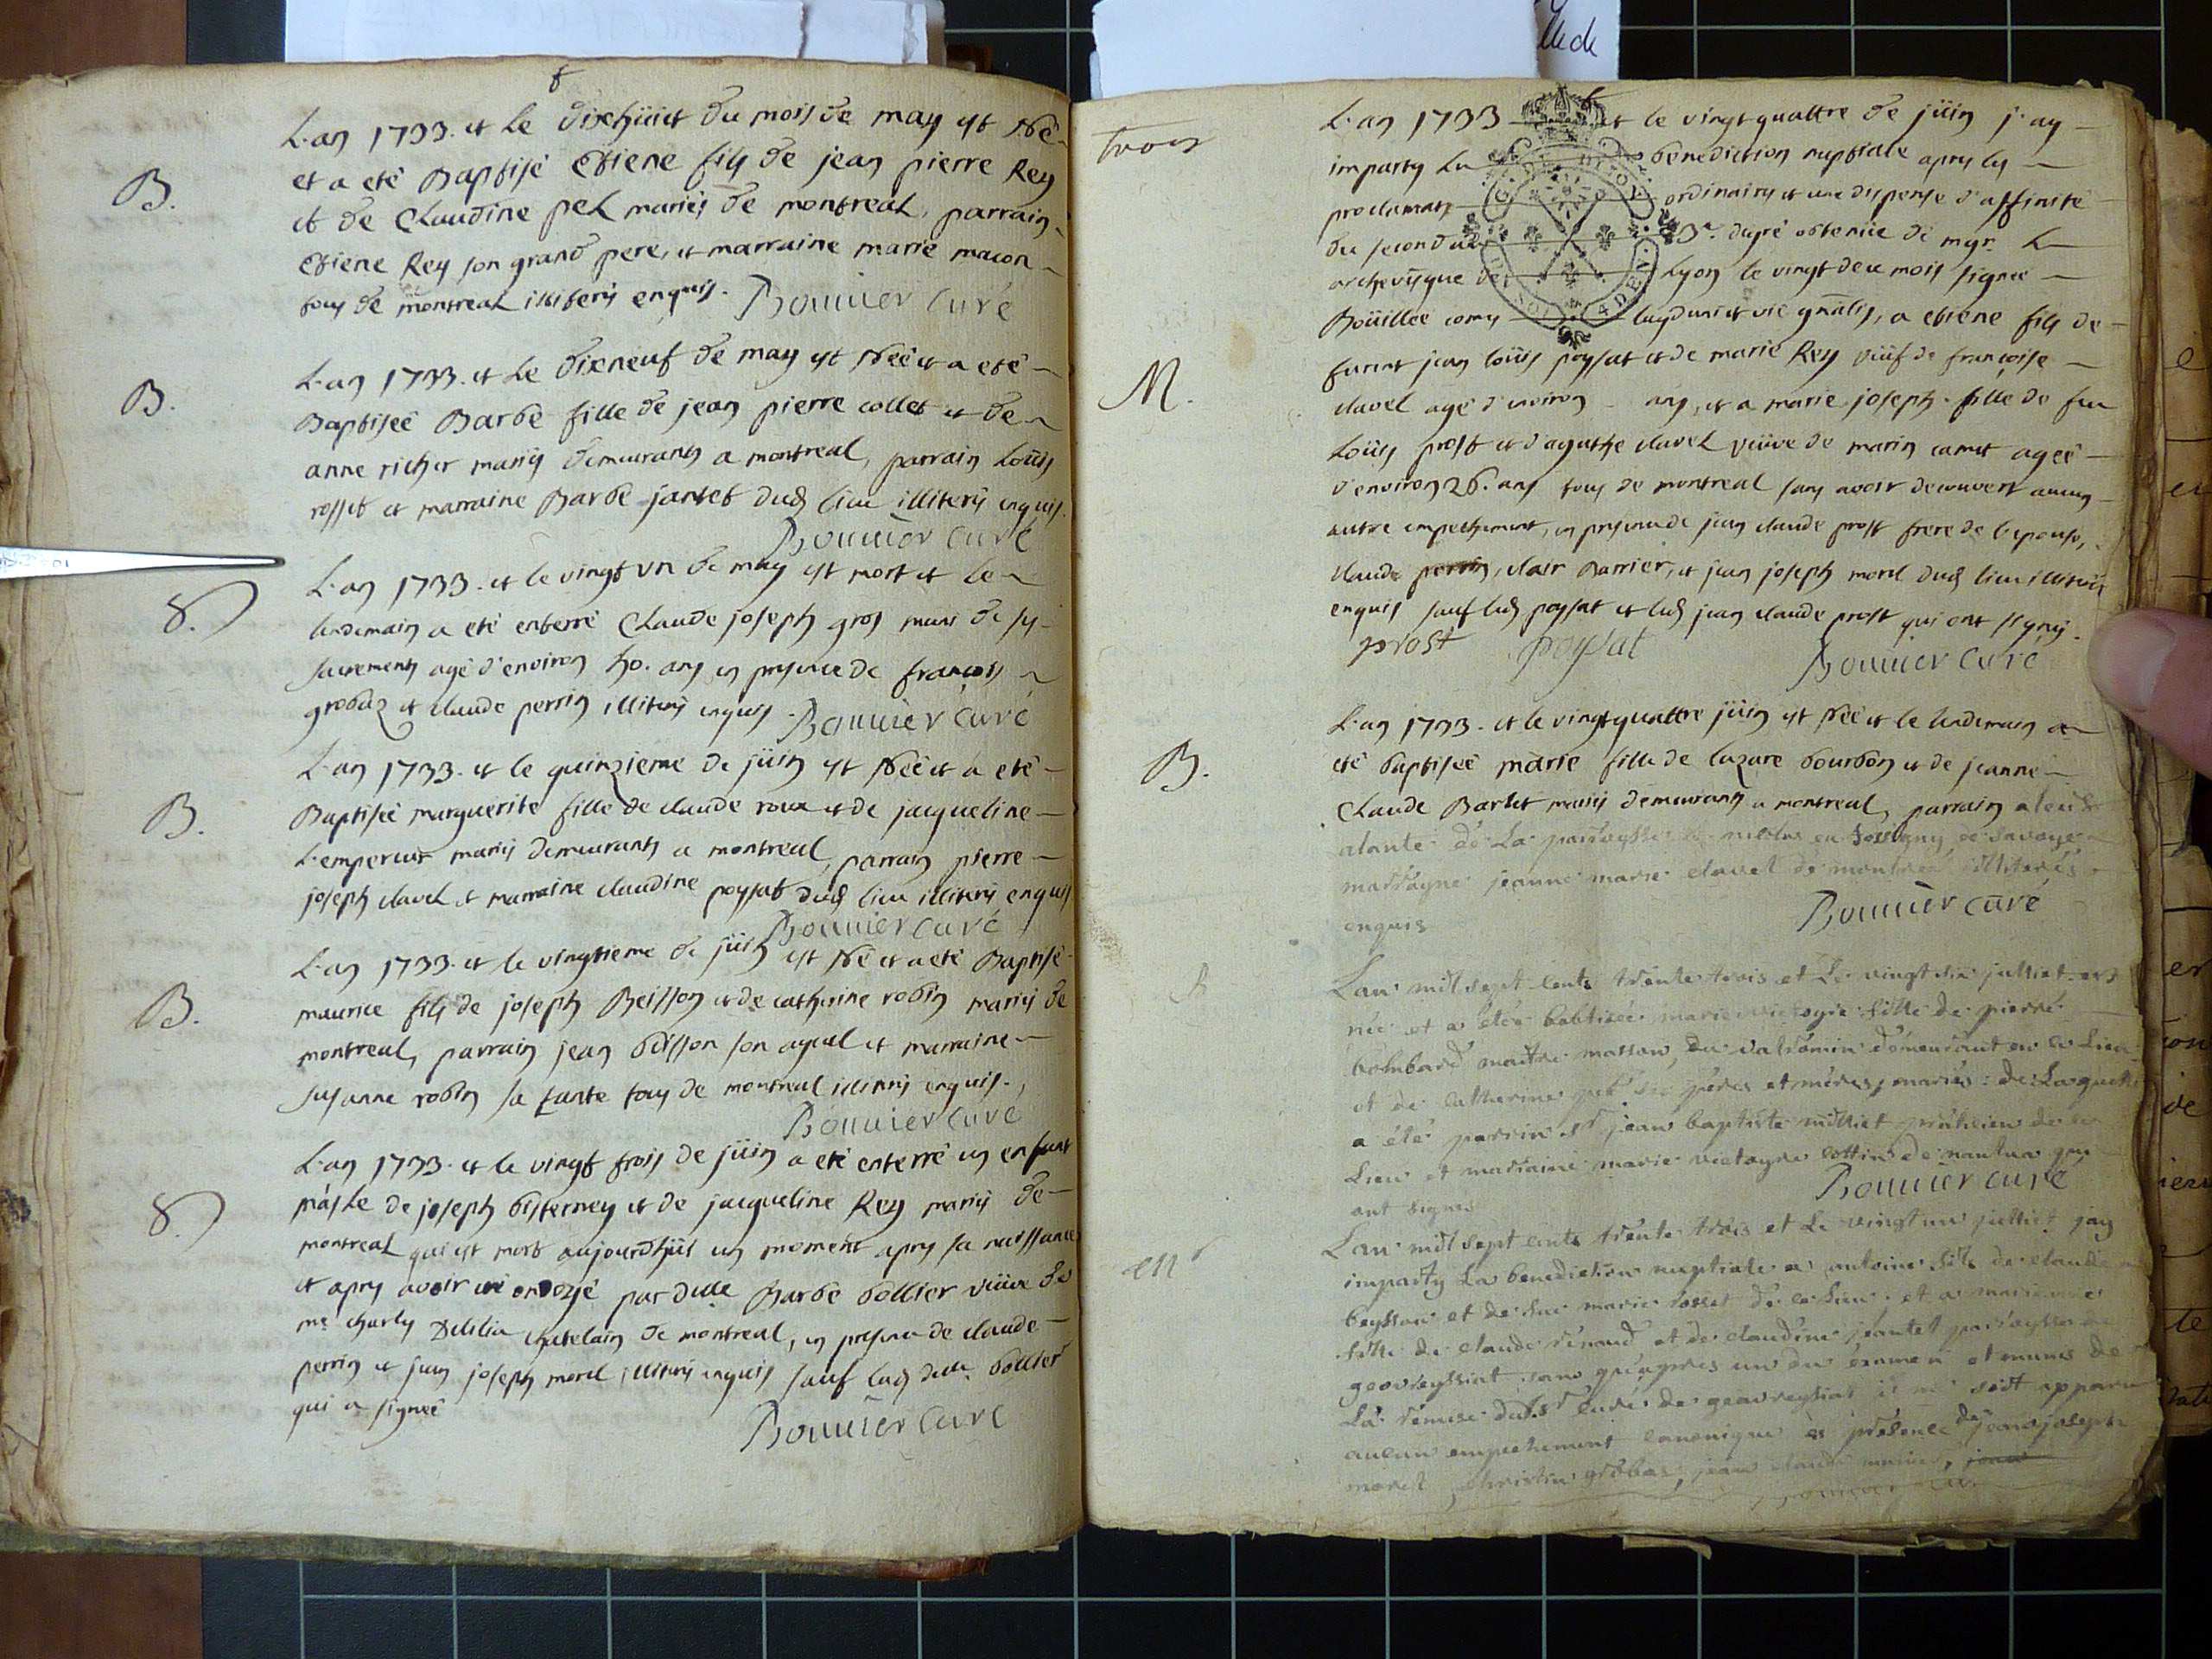 B.
L'an 1733. et Le dixhüict du mois de may est Né
et a eté Baptisé Etiene fils de jean pierre Rey
et de Claudine pel mariés de montreal, parrain
Etiene Rey son grand pere, et marraine marie macon
tous de montreal illiterés enquis. Bonnier Curé
B.
L'an 1733. et Le dixneuf de may est Néé et a eté
Baptiséé Barbe fille de jean pierre collet et de
anne richer mariés demeurants a montreal, parrain Loüis
rosset et marraine Barbe jantet dud lieu illiterés enquis.
Bonnier Curé
S.
L'an 1733. et le vingt un de may est mort et le
lendemain a eté enterré Claude joseph gros muni de ses
sacrements agé d'environ 50. ans en presence de françois
grobaz et claude perrin illiterés enquis. Bonnier Curé
B.
L'an 1733. et le quinzieme de jüin est Néé et a eté
Baptiséé marguerite fille de claude roux et de jacqueline
L'empereur mariés demeurants a montreal, parrain pierre
joseph clavel et marraine claudine poysat dud lieu illiterés enquis
Bonnier Curé
B.
L'an 1733. et le vingtieme de jüin est Né et a eté Baptisé
maurice fils de joseph Beisson et de catherine robin mariés de
montreal, parrain jean Beisson son ayeul et marraine
susanne robin sa tante tous de montreal illiterés enquis.
Bonnier Curé
S.
L'an 1733. et le vingt trois de jüin a eté enterré un enfant
masle de joseph bisterney et de jacqueline Rey mariés de
montreal qui est mort aujourdhüi un moment apres sa naissance
et apres avoir eté ondoyé par dlle Barbe bollier veüve de
me charles chatelain de montreal, en presence de claude
perrin et jean joseph morel illiterés enquis sauf lad dlle bollier
qui a signéé
Bonnier Curé
trois
M.
L'an 1733 et le vingt quattre de jüin j'ay
imparty La benediction nuptiale apres les
proclamats ordinaires et une dispense d'affinité
du second au 3e. degré obtenüe de mgr L
archevesque de Lyon le vingt deu mois signée
Boüillet comes lugduni et vic gnalis, a etiene fils de
furent jean loüis poysat et de marie Rey veüf de francoise
clavel agé d'environ ans, et a marie joseph fille de feu
Loüis prost et d'agathe clavel veüve de marin carret agéé
d'environ 26. ans tous de montreal sans avoir decouvert aucun
autre empechement, en presence de jean claude prost frere de l'epouse,
claude perrin, clair Barrier, et jean joseph morel dud lieu illiterés
enquis sauf led poysat et led jean claude prost qui ont signés.
prost poysat Bonnier Curé
B.
L'an 1733. et le vingtquattre jüin est Néé et le lendemain a
eté baptiséé marie fille de lazare bourbon et de jeanne
Claude Barlet mariés demeurants a montreal, parrain
alante de La parroysse en fossigny de savoye
marrayne jeanne marie clavel de montreal illiterés
enquis Bonnier Curé
Lan mil sept cents trente trois et Le vingt juilliet est
née et a étée babtizée marie victoyre fille de pierre
bombard maitre masson, du valromin demeurant en ce Lieu
et de catherine pel ses pères et mères, mariés: de Laquelle
a été parrin Sr jean baptiste milliet praticien de ce
Lieu et marraine marie victoyre cottin de nantua que
ont signés Bonnier Curé
Lan mil sept cents trente trois et Le vingt un juilliet jay
imparty La benediction nuptiale a antoine fils de claude
beysson et de feue marie rosset de ce Lieu, et a marianne
fille de claude renaud et de claudine jeantet parroysse de
geovreyssiat sans quapres un du examen et munis de
La remise dud Sr curé de geovreyssiat il ne soit apparu
aucun empechement canonique en présence de jean joseph
morel, christin grobas, jean claude